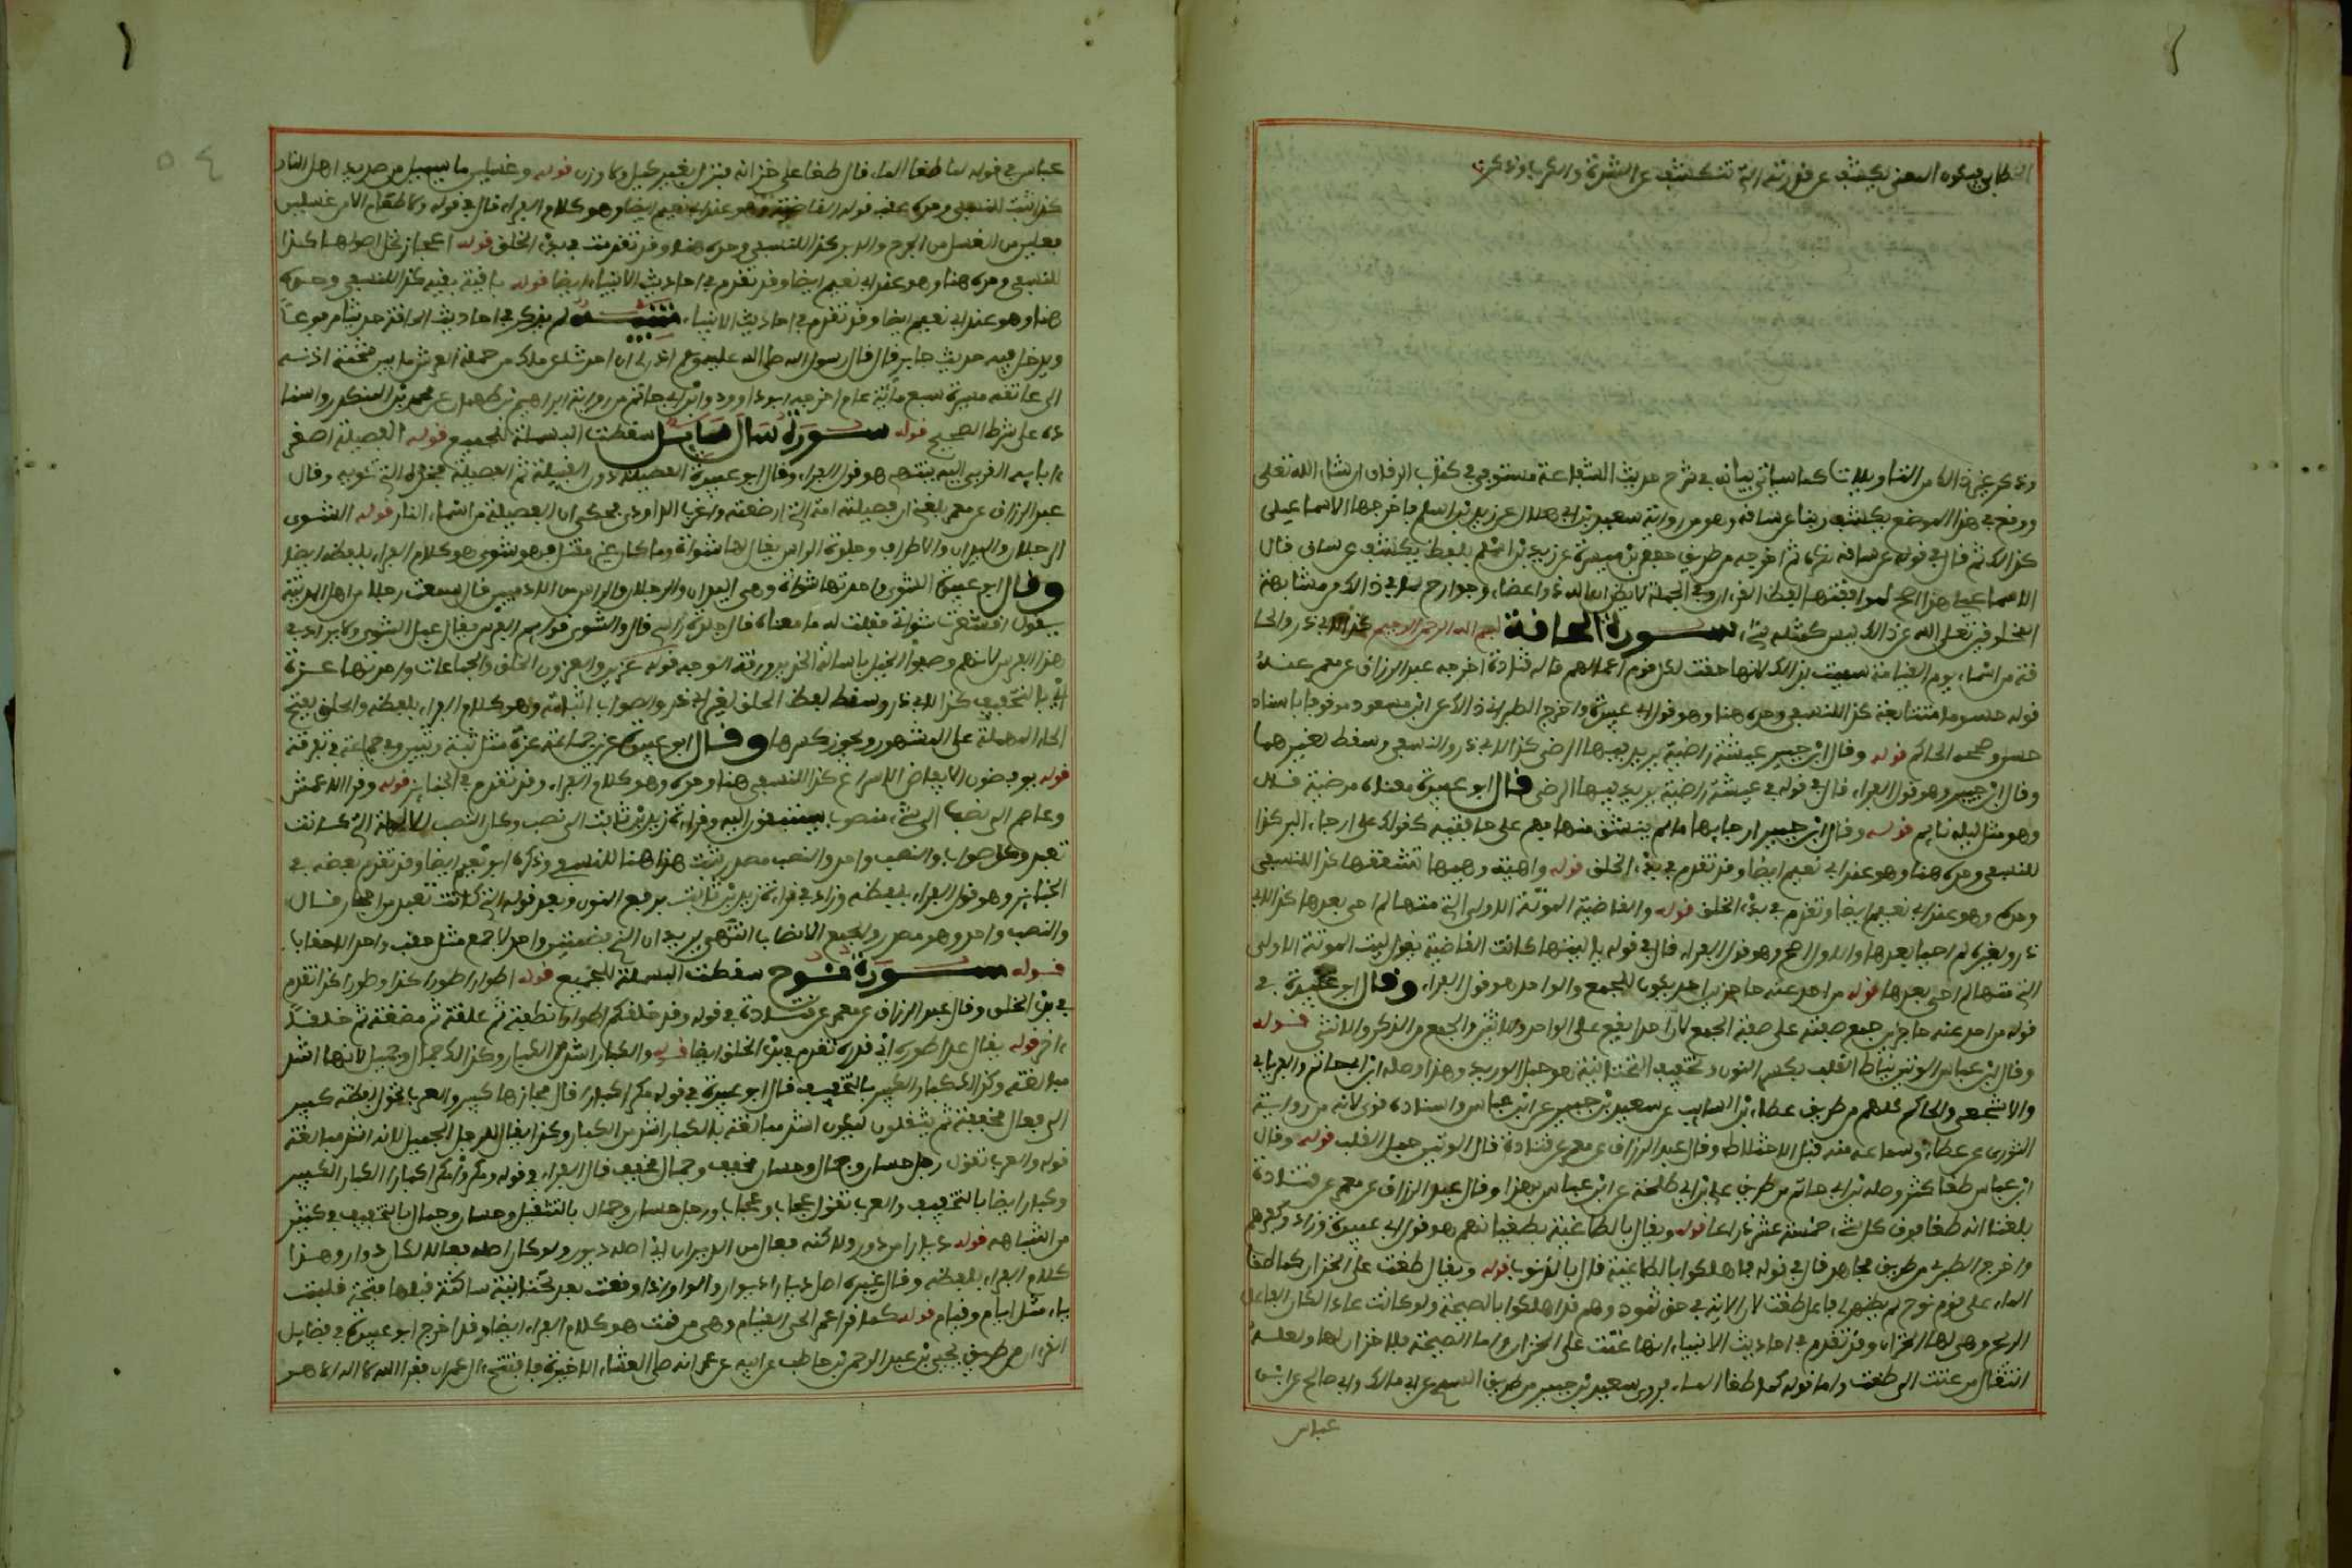 الخطابي فيكون المعنى يكشف عن قدرته التي تنكشف عن الشدة والكرب وذكر
وذكر غير ذلك من التاويلات كما سياتي بيانه في شرح حديث الشفاعة مستوفى في كتاب الرقاق ان شاء الله تعلى
ووقع في هذا الموضع يكشف ربنا عن ساقه وهو من رواية سعيد بن ابي هلال عن زيد بن اسلم فاخرجها الاسماعيلي
كذلك ثم قال في قوله عن ساقه نكرة ثم اخرجه من طريق حفص بن ميسرة عن زيد بن اسلم بلفظ يكشف عن ساق قال
الاسماعيلي هذا اصح لموافقتها لفظ القران في الجملة لا يظن ان الله ذو اعضاء وجوارح لما في ذلك من مشابهة
المخلوقين تعلى الله عن ذلك ليس كمثله شيء سورة الحاقة بسم الله الرحمن الرحيم كذا لابي ذر والحا
قة من اسماء يوم القيامة سميت بذلك لانها حقت لكل قوم اعمالهم قاله قتادة اخرجه عبد الرزاق عن معمر عنه
قوله حسوما متتابعة كذا للنسفي وحده هنا وهو قول ابي عبيدة واخرج الطبراني ذلك عن ابن مسعود موقوفا باسناد
حسن وصححه الحاكم قوله وقال ابن جبير عيشة راضية يريد فيها الرضى كذا لابي ذر والنسفي وسقط لغيرهما
وقال ابن جبير وهو قول الفراء قال في قوله في عيشة راضية يريد فيها الرضى قال ابو عبيدة معناه مرضية قال
وهو مثل ليله نايم قوله وقال ابن جبير ارجايها ما لم ينشق منها فهم على حافتيه كقولك على ارجاء البير كذا
للنسفي وحده هنا وهو عند ابي نعيم ايضا وقد تقدم في بدء الخلق قوله واهية وهيها تشققها كذا للنسفي
وحده وهو عند ابي نعيم ايضا وتقدم في بدء الخلق قوله والقاضية الموتة الاولى التي متها لم احى بعدها كذا لابي
ذر ولغيره ثم احيا بعدها والاول اصح وهو قول الفراء قال في قوله يا ليتها كانت القاضية يقول ليت الموتة الاولى
التي متها لم احى بعدها قوله من احد عنه حاجزين احد يكون للجمع والواحد هو قول الفراء وقال ابو عبيدة في
قوله من احد عنه حاجزين جمع صفته على صفة الجمع لان احدا يقع على الواحد والاثنين والجمع من الذكر والانثى قوله
وقال ابن عباس الوتين نياط القلب بكسر النون وتخفيف التحتانية هو حبل الوريد وهذا وصله ابن ابي حاتم والفريابي
والاشجعي والحاكم كلهم من طريق عطاء بن السايب عن سعيد بن جبير عن ابن عباس واسناده قوى لانه من رواية
الثوري عن عطاء وسماعه منه قبل الاختلاط وقال عبد الرزاق عن معمر عن قتادة قال الوتين حبل القلب قوله وقال
ابن عباس طغا كثر وصله ابن ابي حاتم من طريق علي بن ابي طلحة عن ابن عباس بهذا وقال عبد الرزاق عن معمر عن قتادة
بلغنا انه طغا فوق كل شيء خمسة عشر ذراعا قوله ويقال بالطاغية بطغيانهم هو قول ابي عبيدة وزاد وكفرهم
واخرج الطبري من طريق مجاهد قال في قوله فاهلكوا بالطاغية قال بالذنوب قوله ويقال طغت على الخزان كما طغا
الماء على قوم نوح لم يظهر لي فاعل طغت لان الاية في حق ثمود وهم قد اهلكوا بالصيحة ولو كانت عاد لكان الفاعل
الريح وهي لها الخزان وقد تقدم في احاديث الانبياء انها عتت على الخزان واما الصيحة فلا خزان لها ولعله
انتقال من عتت الى طغت واما قوله لما طغا الماء فروى سعيد بن جبير من طريق السدي عن ابي مالك وابي صالح عن ابن
عباس
عباس في قوله لما طغا الماء قال طغا على خزانه فنزل بغير كيل ولا وزن قوله وغسلين ما يسيل من صديد اهل النار
كذا ثبت للنسفي وحده عقب قوله القاضية وهو عند ابي نعيم ايضا وهو كلام الفراء قال في قوله ولا طعام الا من غسلين
فعلين من الغسل من الجرح والدبر كذا للنسفي وحده هنا وقد تقدمت في بدء الخلق قوله اعجاز نخل اصولها كذا
للنسفي وحده هنا وهو عند ابي نعيم ايضا وقد تقدم في احاديث الانبياء ايضا قوله باقية بقية كذا للنسفي وحده
هنا وهو عند ابي نعيم ايضا وقد تقدم في احاديث الانبياء تنبيه لم يذكر في احاديث الحاقة حديثا مرفوعا
ويدخل فيه حديث جابر قال قال رسول الله صلى الله عليه وسلم اذن لي ان احدث عن ملك من حملة العرش ما بين شحمة اذنه
الى عاتقه مسيرة سبع مائة عام اخرجه ابو داوود وابن ابي حاتم من رواية ابراهيم بن طهمان عن محمد بن المنكدر واسنا
ده على شرط الصحيح قوله سورة سال سايل سقطت البسملة للجميع قوله الفصيلة اصغر
ءابايه القربى اليه ينتمى هو قول الفراء وقال ابو عبيدة الفصيلة دون القبيلة ثم الفصيلة فخذه التي تئويه وقال
عبد الرزاق عن معمر بلغني ان فصيلته امه التي ارضعته واغرب الداودي فحكى ان الفصيلة من اسماء النار قوله للشوى
الرجلان واليدان والاطراف وجلدة الراس يقال لها شواة وما كان غير مقتل فهو شوى هو كلام الفراء بلفظه ايضا
وقال ابو عبيدة الشوى واحدتها شواة وهي اليدان والرجلان والراس من الادميين قال وسمعت رجلا من اهل المدينة
يقول اقشعرت شواتي فقلت له ما معناه قال جلدة راسي قال والشوى قوايم الفرس يقال عبل الشوى ولا يراد في
هذا الراس لانهم وصفوا الخيل باسالة الخدين ورقة الوجه قوله عزين والعزون الحلق والجماعات واحدتها عزة
اي بالتخفيف كذا لابي ذر وسقط لفظ الحلق لغير ابي ذر والصواب اثباته وهو كلام الفراء بلفظه والحلق بفتح
الحاء المهملة على المشهور ويجوز كسرها وقال ابو عبيدة عزين جماعة عزة مثل ثبة وثبين وهي جماعة في تفرقة
قوله يوفضون الايفاض الاسراع كذا للنسفي هنا وحده وهو كلام الفراء وقد تقدم في الجنايز قوله وقرا الاعمش
وعاصم الى نصب الى شيء منصوب يستبقون اليه وقراءة زيد بن ثابت الى نصب وكان النصب الالهة التي كانت
تعبد وكل صواب والنصب واحد والنصب مصدر ثبت هذا هنا للنسفي وذكره ابو نعيم ايضا وقد تقدم بعضه في
الجنايز وهو قول الفراء بلفظه وزاد في قراءة زيد بن ثابت برفع النون وبعد قوله التي كانت تعبد من احجار قال
والنصب واحد وهو مصدر والجمع الانصاب انتهى يريد ان الذي بضمتين واحد لا جمع مثل حقب واحد الاحقاب
قوله سورة نوح سقطت البسملة للجميع قوله اطوارا طورا كذا وطورا كذا تقدم
في بدء الخلق وقال عبد الرزاق عن معمر عن قتادة في قوله وقد خلقكم اطوارا نطفة ثم علقة ثم مضغة ثم خلقا
ءاخر قوله يقال عدا طوره اي قدره تقدم في بدء الخلق ايضا قوله والكبار اشد من الكبار وكذلك جمال وجميل لانها اشد
مبالغة وكذلك كبار الكبير بالتخفيف قال ابو عبيدة في قوله مكرا كبارا قال مجازها كبير والعرب تحول لفظة كبير
الى فعال مخففة ثم يثقلون ليكون اشد مبالغة فالكبار اشد من الكبار وكذا يقال للرجل الجميل لانه اشد مبالغة
قوله والعرب تقول رجل حسان وجمال وحسان مخفف وجمال مخفف قال الفراء في قوله ومكروا مكرا كبارا الكبار الكبير
وكبار ايضا بالتخفيف والعرب تقول عجاب وعجاب ورجل حسان وجمال بالتثقيل وحسان وجمال بالتخفيف في كثير
من اشباهه قوله ديارا من دور ولكنه فيعال من الدوران اي اصله ديوار ولو كان اصله فعالا لكان دوارا وهذا
كلام الفراء بلفظه وقال غيره اصل ديار ديوار والواو اذا وقعت بعد تحتانية ساكنة قبلها فتحة قلبت
ياء مثل ايام وقيام قوله كما قرا عمر الحي القيام وهي من قمت هو كلام الفراء ايضا وقد اخرج ابو عبيدة في فضايل
القران من طريق يحيى بن عبد الرحمن بن حاطب عن ابيه عن عمر انه صلى العشاء الاخيرة فاستفتح ءال عمران فقرا الله لا اله الا هو